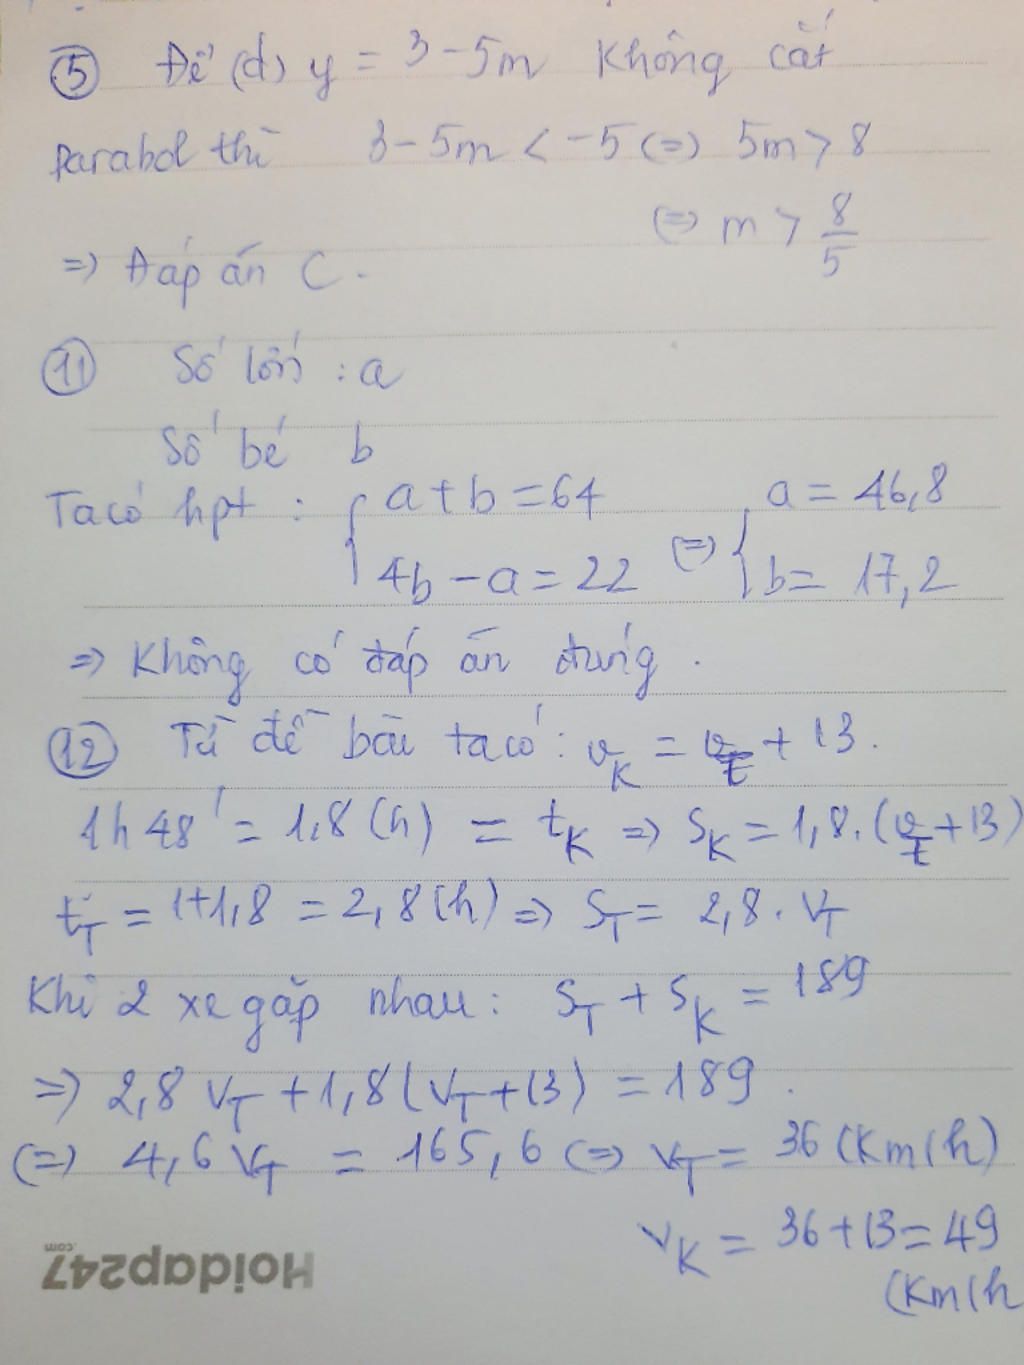 ⑤ Để (d) y = 3 - 5m không cắt
Parabol thì 3 - 5m < -5 (=) 5m > 8
(=) m > 8/5
=> Đáp án C.
⑪ Số lớn : a
Số bé b
Ta có hpt : { a + b = 64 (=) { a = 46,8
4b - a = 22 b = 17,2
=> Không có đáp án đúng.
⑫ Từ đề bài ta có : v_K = v_T + 13.
1h 48' = 1,8 (h) = t_K => S_K = 1,8.(v_T + 13)
t_T = 1 + 1,8 = 2,8 (h) => S_T = 2,8 . V_T
Khi 2 xe gặp nhau : S_T + S_K = 189
=> 2,8 V_T + 1,8 (V_T + 13) = 189.
(=) 4,6 V_T = 165,6 (=) V_T = 36 (Km/h)
V_K = 36 + 13 = 49
(Km/h
Hoidap247.com